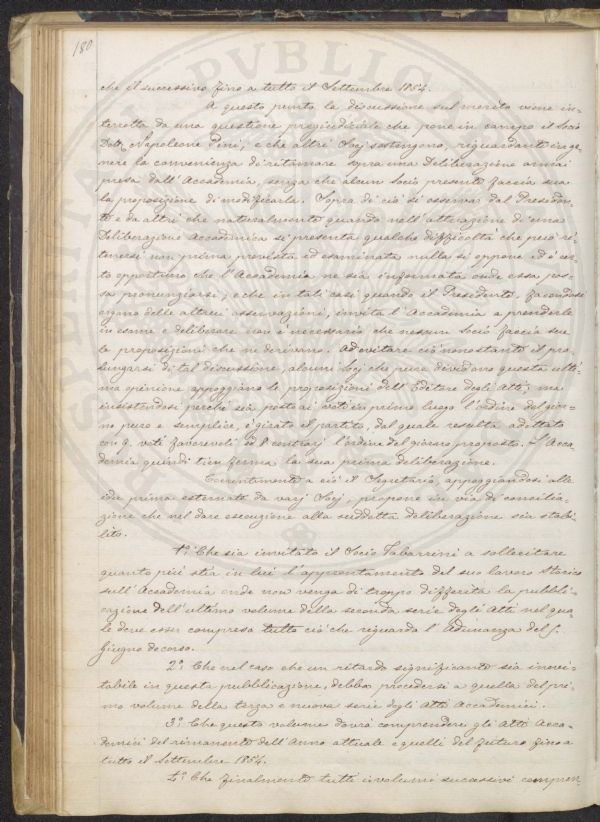 180
che il successivo fino a tutto il Settembre 1854.
A questo punto la discussione sul merito viene in=
terrotta da una questione pregiudiciale che pone in campo il Socio
Dott. Napoleone Pini, e che altri Socj sostengono, riguardante in ge=
nere la convenienza di ritornare sopra una Deliberazione omai
presa dall'Accademia, senza che alcun Socio presente faccia sua
la proposizione di modificarla. Sopra di ciò si osserva dal Presiden=
te e da altri che naturalmente quando nell'attuazione di una
Deliberazione Accademica si presenta qualche difficoltà che può ri=
tenersi non prima prevista ed esaminata nulla si oppone ed è an=
zi opportuno che l'Accademia ne sia informata onde essa pos=
sa pronunziarsi, e che in tali casi quando il Presidente, facendosi
organo delle altrui osservazioni, invita l'Accademia a prenderle
in esame e deliberare non è necessario che nessun Socio faccia sue
le proposizioni che ne derivano. Ad evitare ciò nonostante il pro=
lungarsi di tal discussione, alcuni Socj che pure dividono questa ulti=
ma opinione appoggiano le proposizioni dell'Editore degli Atti; ma
insistendosi perchè sia posto ai voti in primo luogo l'ordine del gior=
no puro e semplice, è girato il partito, dal quale resulta adottato
con 9. voti favorevoli ed 8 contrarj l'ordine del giorno proposto. L'Acca=
demia quindi tien ferma la sua prima deliberazione.
Coerentemente a ciò il Segretario, appoggiandosi alle
idee prima esternate da varj Socj, propone in via di concilia=
zione che nel dare esecuzione alla suddetta deliberazione sia stabi=
lito.
1.º Che sia invitato il Socio Tabarrini a sollecitare
quanto più stia in lui l'approntamento del suo lavoro storico
sull'Accademia onde non venga di troppo differita la pubbli=
cazione dell'ultimo volume della seconda serie degli Atti nel qua=
le deve esser compreso tutto ciò che riguarda l'Adunanza del
Giugno decorso.
2.º Che nel caso che un ritardo significante sia inevi=
tabile in questa pubblicazione, debba procedersi a quella del pri=
mo volume della terza e nuova serie degli Atti Accademici.
3.º Che questo volume dovrà comprendere gli Atti Acca=
demici del rimanente dell'Anno attuale e quelli del futuro fino a
tutto il Settembre 1854.
4.º Che finalmente tutti i volumi successivi compren=